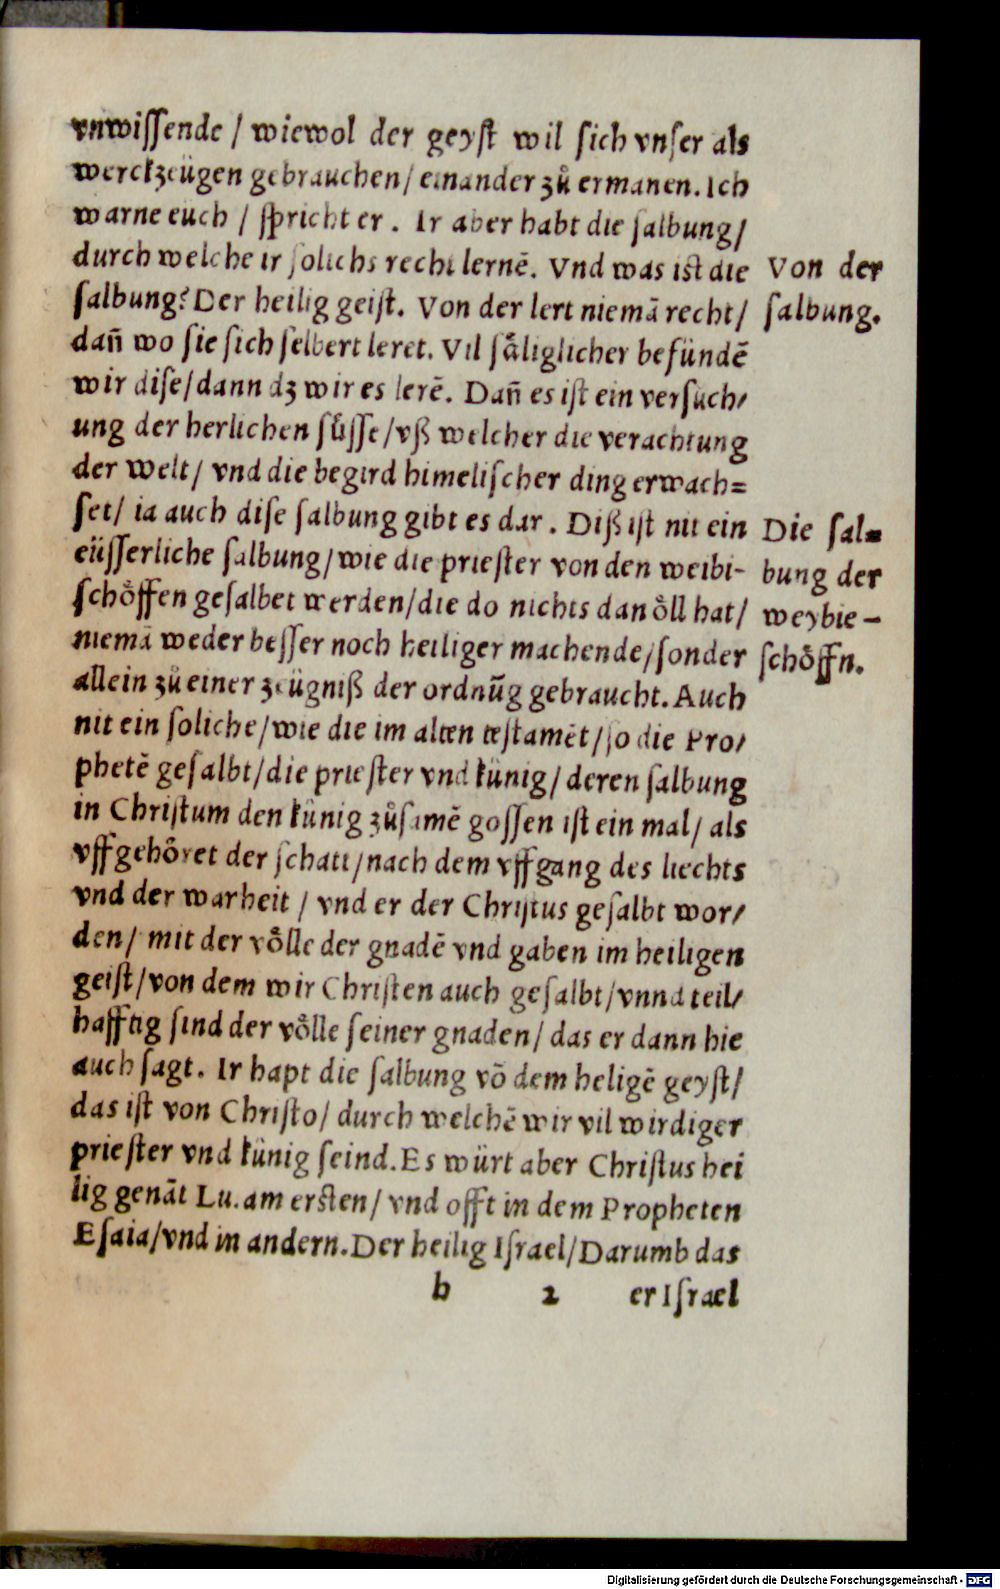 vnwiſſende / wiewol der geyſt wil ſich vnſer als
werckzeügen gebrauchen / einander zů ermanen. Ich
warne euch / ſpricht er. Ir aber habt die ſalbung /
durch welche ir ſolichs recht lernē. Vnd was iſt die
ſalbung? Der heilig geiſt. Von der lert niemā recht /
dañ wo ſie ſich ſelbert leret. Vil ſäliglicher befündē
wir diſe / dann dz wir es lerē. Dañ es iſt ein verſuch/
ung der herlichen ſůſſe / vß welcher die verachtung
der welt / vnd die begird himeliſcher ding erwach=
ſet / ia auch diſe ſalbung gibt es dar. Diß iſt nit ein
eüſſerliche ſalbung / wie die prieſter von den weibi-
ſchöffen geſalbet werden / die do nichts dan öll hat /
niemā weder beſſer noch heiliger machende / ſonder
allein zů einer zeügniß der ordnūg gebraucht. Auch
nit ein ſoliche / wie die im alten teſtamēt / ſo die Pro/
phetē geſalbt / die prieſter vnd künig / deren ſalbung
in Chriſtum den künig zůſamē goſſen iſt ein mal / als
vffgehöret der ſchatt / nach dem vffgang des liechts
vnd der warheit / vnd er der Chriſtus geſalbt wor/
den / mit der völle der gnadē vnd gaben im heiligen
geiſt / von dem wir Chriſten auch geſalbt / vnnd teil/
hafftig ſind der völle ſeiner gnaden / das er dann hie
auch ſagt. Ir hapt die ſalbung vō dem heligē geyſt /
das iſt von Chriſto / durch welchē wir vil wirdiger
prieſter vnd künig ſeind. Es würt aber Chriſtus hei
lig genāt Lu. am erſten / vnd offt in dem Propheten
Eſaia / vnd in andern. Der heilig Iſrael / Darumb das
b 2 er Iſrael
Von der
ſalbung.
Die ſal=
bung der
weybie-
ſchöffn.
Digitalisierung gefördert durch die Deutsche Forschungsgemeinschaft - DFG